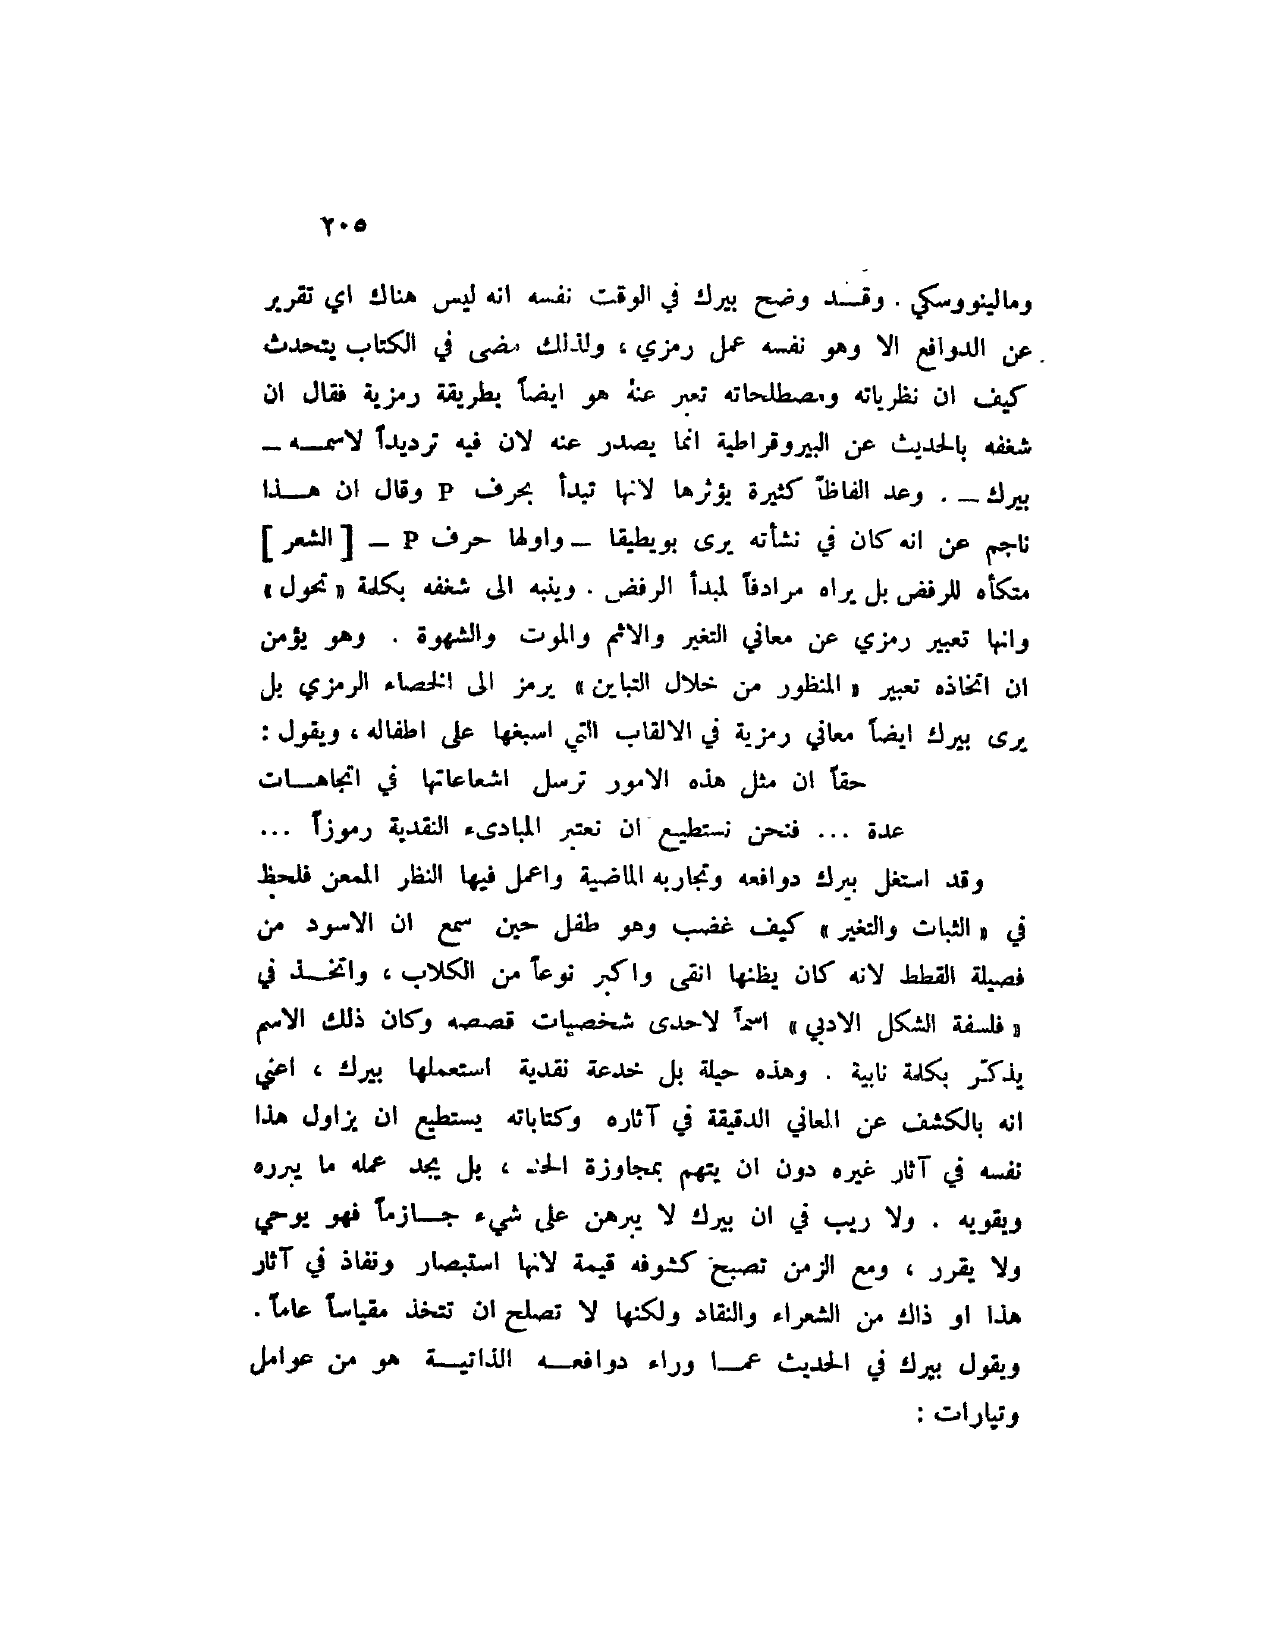 ٢٠٥
ومالينووسكي . وقد وضح بيرك في الوقت نفسه انه ليس هناك اي تقرير
عن الدوافع الا وهو نفسه عمل رمزي ، ولذلك مضى في الكتاب يتحدث
كيف ان نظرياته ومصطلحاته تعبر عنه هو ايضاً بطريقة رمزية فقال ان
شغفه بالحديث عن البيروقراطية انما يصدر عنه لان فيه ترديداً لاسمه –
بيرك – . وعد الفاظاً كثيرة يؤثرها لانها تبدأ بحرف P وقال ان هذا
ناجم عن انه كان في نشأته يرى بويطيقا – واولها حرف P – [ الشعر ]
متكأه للرفض بل يراه مرادفاً لمبدأ الرفض . وينبه الى شغفه بكلمة « تحول »
وانها تعبير رمزي عن معاني التغير والاثم والموت والشهوة . وهو يؤمن
ان اتخاذه تعبير « المنظور من خلال التباين » يرمز الى الخصاء الرمزي بل
يرى بيرك ايضاً معاني رمزية في الالقاب التي اسبغها على اطفاله ، ويقول :
حقاً ان مثل هذه الامور ترسل اشعاعاتها في اتجاهات
عدة ... فنحن نستطيع ان نعتبر المبادىء النقدية رموزاً ...
وقد استغل بيرك دوافعه وتجاربه الماضية واعمل فيها النظر الممعن فلحظ
في « الثبات والتغير » كيف غضب وهو طفل حين سمع ان الاسود من
فصيلة القطط لانه كان يظنها انقى واكبر نوعاً من الكلاب ، واتخذ في
« فلسفة الشكل الادبي » اسماً لاحدى شخصيات قصصه وكان ذلك الاسم
يذكّر بكلمة نابية . وهذه حيلة بل خدعة نقدية استعملها بيرك ، اعني
انه بالكشف عن المعاني الدقيقة في آثاره وكتاباته يستطيع ان يزاول هذا
نفسه في آثار غيره دون ان يتهم بمجاوزة الحد ، بل يجد عمله ما يبرره
ويقويه . ولا ريب في ان بيرك لا يبرهن على شيء جازماً فهو يوحي
ولا يقرر ، ومع الزمن تصبح كشوفه قيمة لانها استبصار ونفاذ في آثار
هذا او ذاك من الشعراء والنقاد ولكنها لا تصلح ان تتخذ مقياساً عاماً .
ويقول بيرك في الحديث عما وراء دوافعه الذاتية هو من عوامل
وتيارات :